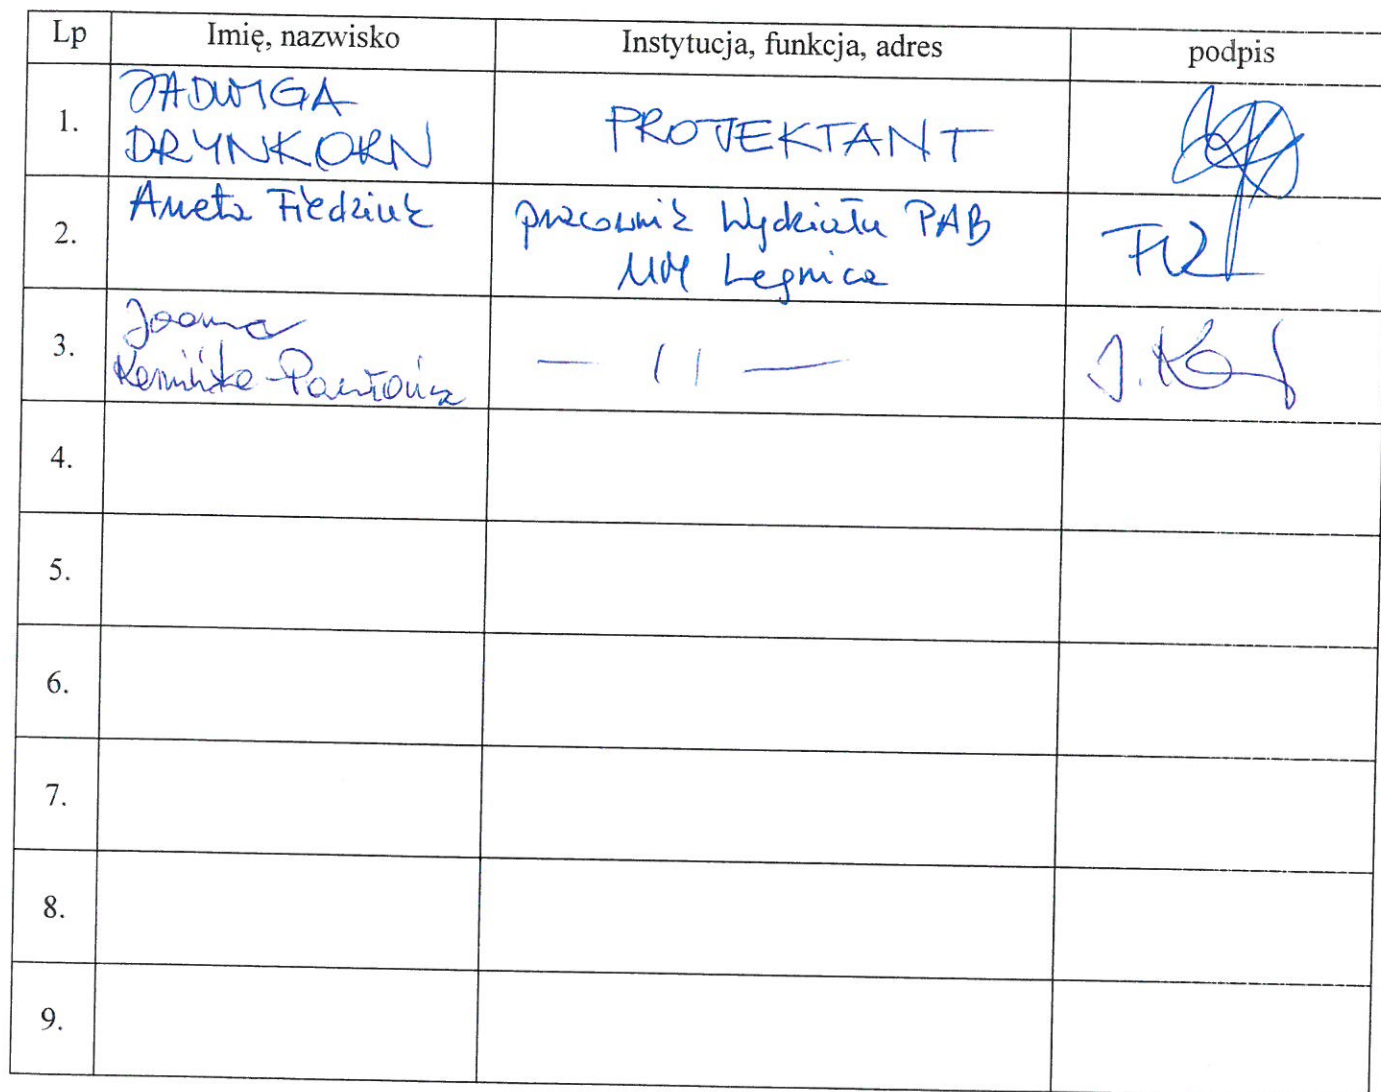 Lp Imię, nazwisko Instytucja, funkcja, adres podpis
1. JADWIGA
DRYNKORN PROJEKTANT
2. Aneta Fiedziuk pracownik Wydziału PAB
UM Legnica
3. Joanna
— 11 — J.
4.
5.
6.
7.
8.
9.